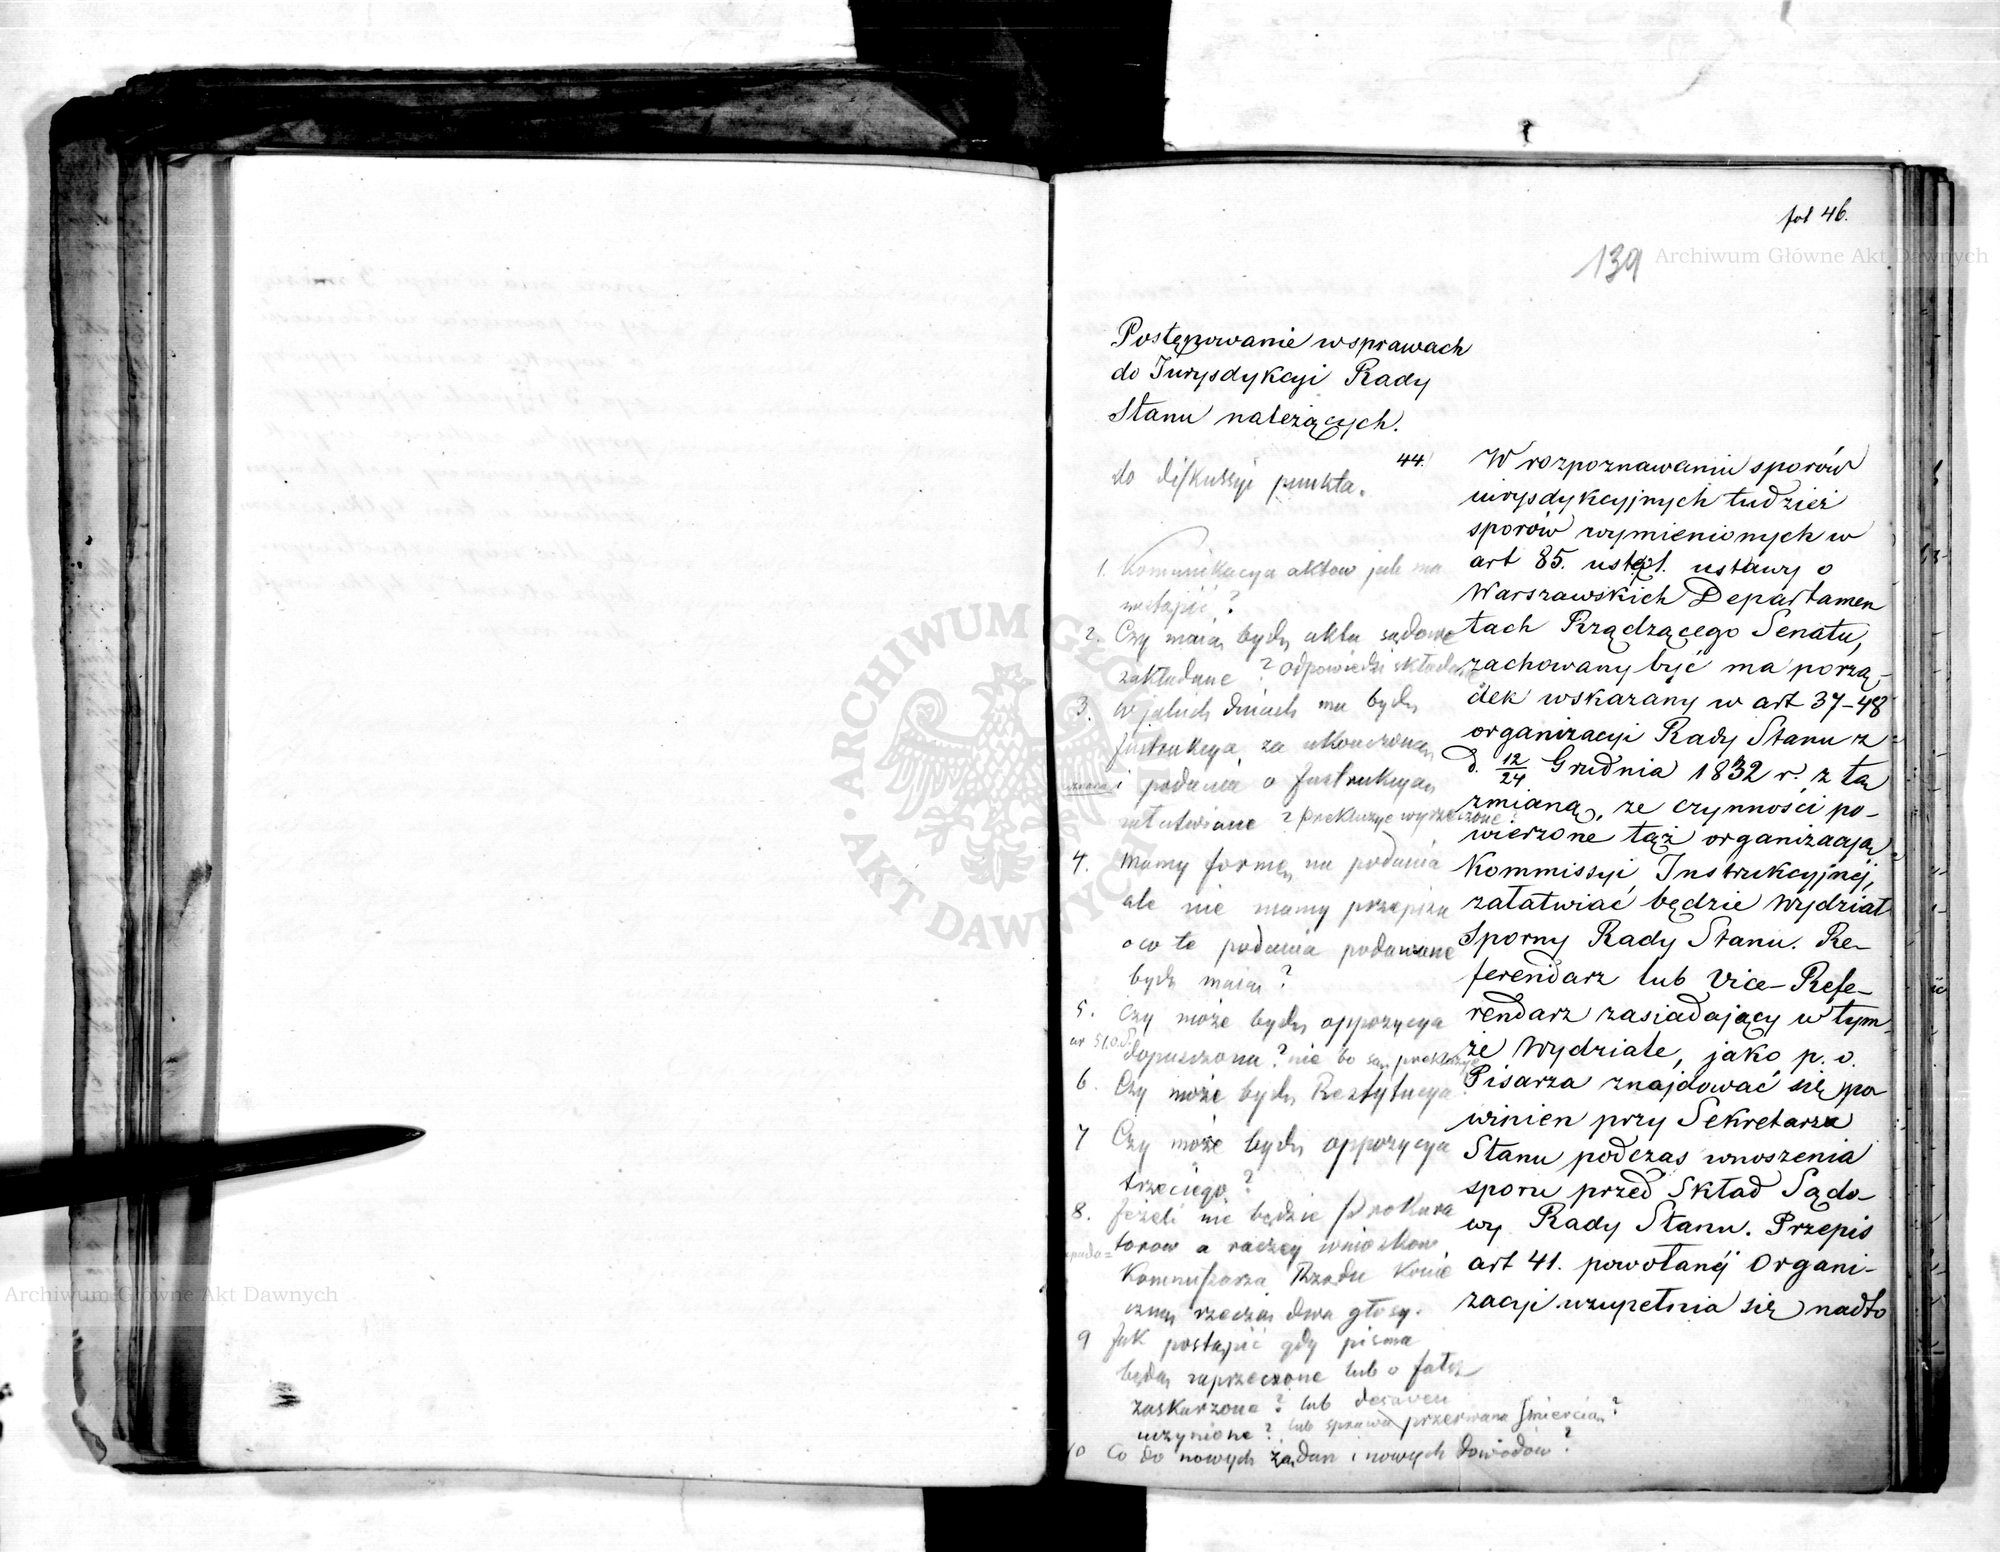 fol 46.
139
Postępowanie w sprawach
do Jurysdykcyi Rady
Stanu należących.
do diskussyi punkta.
1. Komunikacya aktow jak ma
nastąpić?
2. Czy maią bydź akta sądowe
zakładane? odpowiedzi składa
3. w jakich dniach ma bydź
Instrukcya za ukończoną
i podania o Instrukcyą
załatwione? prekluzye wyrzeczone?
4. Mamy formę na podania
ale nie mamy przepisu
o co te podania podawane
bydź maią?
5. Czy może bydź oppozycya
dopuszczona? nie bo są prekluzye
6. Czy może bydź Restytucya?
7 Czy może bydź oppozycya
trzeciego?
8. Jeżeli nie będzie Prokura
torow a raczey wniosków
Kommissarza Rządu Konie
czną rzeczą dwa głosy.
9 Jak postąpić gdy pisma
będą zaprzeczone lub o fałsz
zaskarzone? lub desaveu
uczynione? lub sprawa przerwana śmiercią?
10 Co do nowych żądan i nowych dowodów?
44. W rozpoznawaniu sporów
iurysdykcyjnych tudzież
sporów wymienionych w
art 85. ustęp 1. ustawy o
Warszawskich Departamen
tach Rządzącego Senatu,
zachowany być ma porzą-
dek wskazany w art 37-48
organizacyi Rady Stanu z
d. 12/24 Grudnia 1832 r. z tą
zmianą, że czynności po-
wierzone tąż organizacyą
Kommissyi Instrukcyjnéj,
załatwiać będzie Wydział
Sporny Rady Stanu. Re-
ferendarz lub Vice-Refe-
rendarz zasiadający w tym-
że Wydziale, jako p. o.
Pisarza znajdować się po
winien przy Sekretarzu
Stanu podczas wnoszenia
sporu przed Skład Sądo-
wy Rady Stanu. Przepis
art 41. powołanéj Organi-
zacyi uzupełnia się nadto
Archiwum Główne Akt Dawnych
Archiwum Główne Akt Dawnych
ARCHIWUM GŁÓWNE AKT DAWNYCH